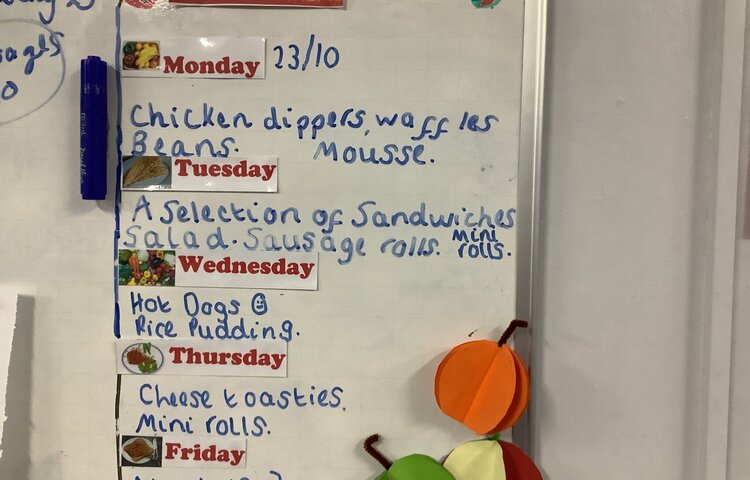 Monday 23/10
Chicken dippers, waffles
Beans. Mousse.
Tuesday
A Selection of Sandwiches
Salad. Sausage rolls. Mini rolls.
Wednesday
Hot Dogs
Rice Pudding.
Thursday
Cheese toasties.
Mini rolls.
Friday